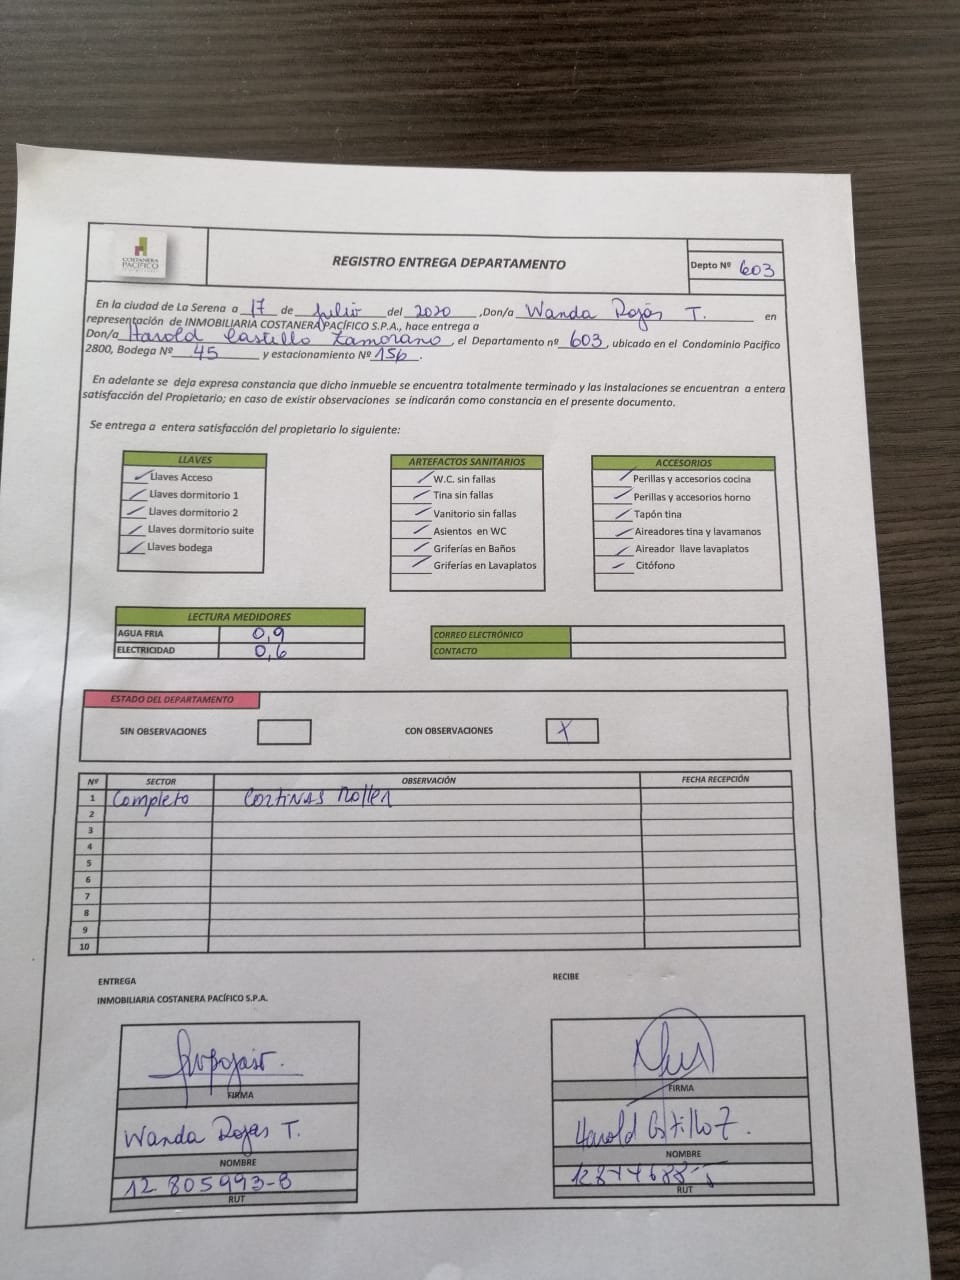 COSTANERA
PACÍFICO
REGISTRO ENTREGA DEPARTAMENTO
Depto Nº 603
En la ciudad de La Serena a 17 de Julio del 2020 ,Don/a Wanda Rojas T. en
representación de INMOBILIARIA COSTANERA PACÍFICO S.P.A., hace entrega a
Don/a Harold Castillo Zamorano, el Departamento nº 603, ubicado en el Condominio Pacífico
2800, Bodega Nº 45 y estacionamiento Nº 156.
En adelante se deja expresa constancia que dicho inmueble se encuentra totalmente terminado y las instalaciones se encuentran a entera
satisfacción del Propietario; en caso de existir observaciones se indicarán como constancia en el presente documento.
Se entrega a entera satisfacción del propietario lo siguiente:
LLAVES
Llaves Acceso
Llaves dormitorio 1
Llaves dormitorio 2
Llaves dormitorio suite
Llaves bodega
ARTEFACTOS SANITARIOS
W.C. sin fallas
Tina sin fallas
Vanitorio sin fallas
Asientos en WC
Griferías en Baños
Griferías en Lavaplatos
ACCESORIOS
Perillas y accesorios cocina
Perillas y accesorios horno
Tapón tina
Aireadores tina y lavamanos
Aireador llave lavaplatos
Citófono
LECTURA MEDIDORES
AGUA FRIA 0,9
ELECTRICIDAD 0,6
CORREO ELECTRÓNICO
CONTACTO
ESTADO DEL DEPARTAMENTO
SIN OBSERVACIONES
CON OBSERVACIONES X
Nº SECTOR OBSERVACIÓN FECHA RECEPCIÓN
1 Completo Cortinas Roller
2
3
4
5
6
7
8
9
10
ENTREGA
INMOBILIARIA COSTANERA PACÍFICO S.P.A.
FIRMA
Wanda Rojas T.
NOMBRE
12 805993-8
RUT
RECIBE
FIRMA
Harold Castillo Z.
NOMBRE
RUT